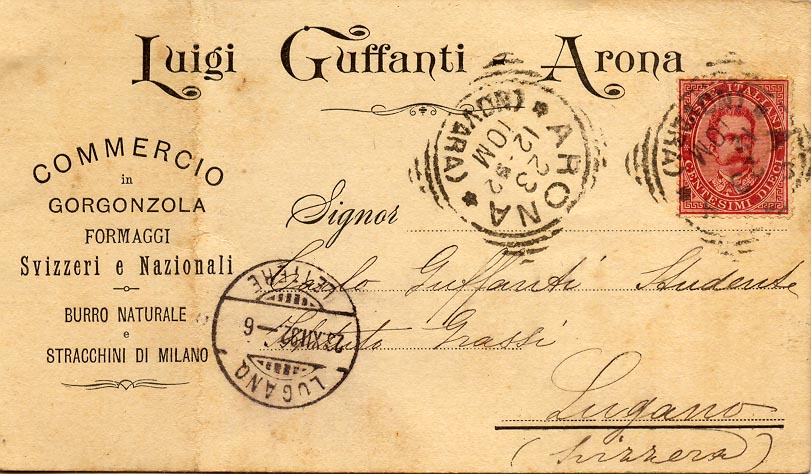 Luigi Guffanti - Arona
COMMERCIO
in
GORGONZOLA
FORMAGGI
Svizzeri e Nazionali
BURRO NATURALE
e
STRACCHINI DI MILANO
ARONA
(NOVARA)
12-92
23
10M
ITALIANE
CENTESIMI DIECI
Signor
Carlo Guffanti Studente
Istituto Grassi
Lugano
(Svizzera)
LUGANO
LETTERE
XII.92.-6